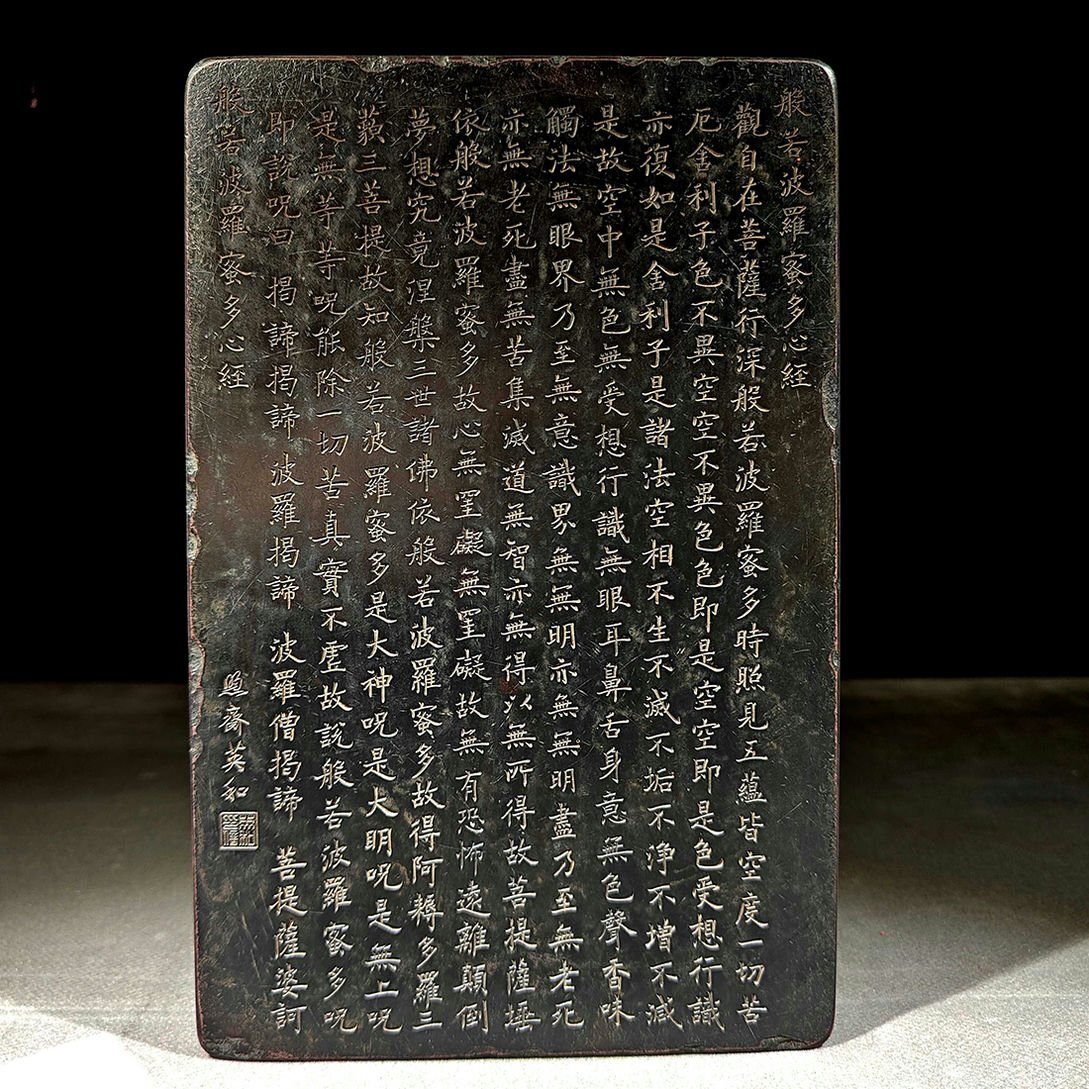 般若波羅蜜多心經
觀自在菩薩行深般若波羅蜜多時照見五蘊皆空度一切苦
厄舍利子色不異空空不異色色即是空空即是色受想行識
亦復如是舍利子是諸法空相不生不滅不垢不淨不增不減
是故空中無色無受想行識無眼耳鼻舌身意無色聲香味
觸法無眼界乃至無意識界無無明亦無無明盡乃至無老死
亦無老死盡無苦集滅道無智亦無得以無所得故菩提薩埵
依般若波羅蜜多故心無罣礙無罣礙故無有恐怖遠離顛倒
夢想究竟涅槃三世諸佛依般若波羅蜜多故得阿耨多羅三
藐三菩提故知般若波羅蜜多是大神呪是大明呪是無上呪
是無等等呪能除一切苦真實不虛故說般若波羅蜜多呪
即說呪曰 揭諦揭諦 波羅揭諦 波羅僧揭諦 菩提薩婆訶
般若波羅蜜多心經
煦齋英和